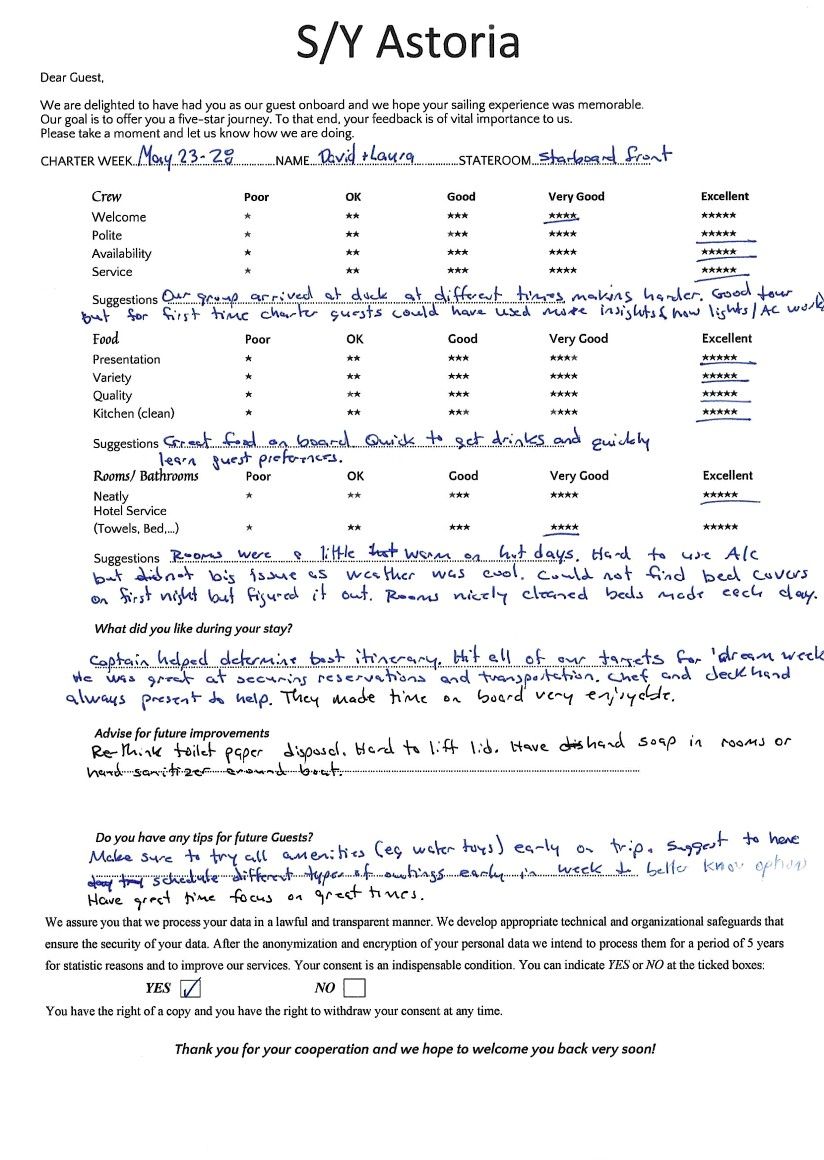 S/Y Astoria
Dear Guest,
We are delighted to have had you as our guest onboard and we hope your sailing experience was memorable.
Our goal is to offer you a five-star journey. To that end, your feedback is of vital importance to us.
Please take a moment and let us know how we are doing.
CHARTER WEEK May 23-28 NAME David + Laura STATEROOM Starboard front
Crew Poor OK Good Very Good Excellent
Welcome * ** *** **** *****
Polite * ** *** **** *****
Availability * ** *** **** *****
Service * ** *** **** *****
Suggestions Our group arrived at dock at different times making harder. Good tour
but for first time charter guests could have used more insights how lights/AC work
Food Poor OK Good Very Good Excellent
Presentation * ** *** **** *****
Variety * ** *** **** *****
Quality * ** *** **** *****
Kitchen (clean) * ** *** **** *****
Suggestions Great food on board Quick to get drinks and quickly
learn guest preferences.
Rooms/ Bathrooms Poor OK Good Very Good Excellent
Neatly * ** *** **** *****
Hotel Service
(Towels, Bed,...) * ** *** **** *****
Suggestions Rooms were a little warm on hot days. Hard to use A/c
but not big issue as weather was cool. Could not find bed covers
on first night but figured it out. Rooms nicely cleaned beds made each day.
What did you like during your stay?
Captain helped determine best itinerary. Hit all of our targets for 'dream week
He was great at securing reservations and transportation. Chef and deckhand
always present to help. They made time on board very enjoyable.
Advise for future improvements
Re-think toilet paper disposal. Hard to lift lid. Have hand soap in rooms or
hand sanitizer around boat.
Do you have any tips for future Guests?
Make sure to try all amenities (eg water toys) early on trip. Suggest to have
schedule different types of outings early in week to better know options
Have great time focus on great times.
We assure you that we process your data in a lawful and transparent manner. We develop appropriate technical and organizational safeguards that
ensure the security of your data. After the anonymization and encryption of your personal data we intend to process them for a period of 5 years
for statistic reasons and to improve our services. Your consent is an indispensable condition. You can indicate YES or NO at the ticked boxes:
YES NO
You have the right of a copy and you have the right to withdraw your consent at any time.
Thank you for your cooperation and we hope to welcome you back very soon!